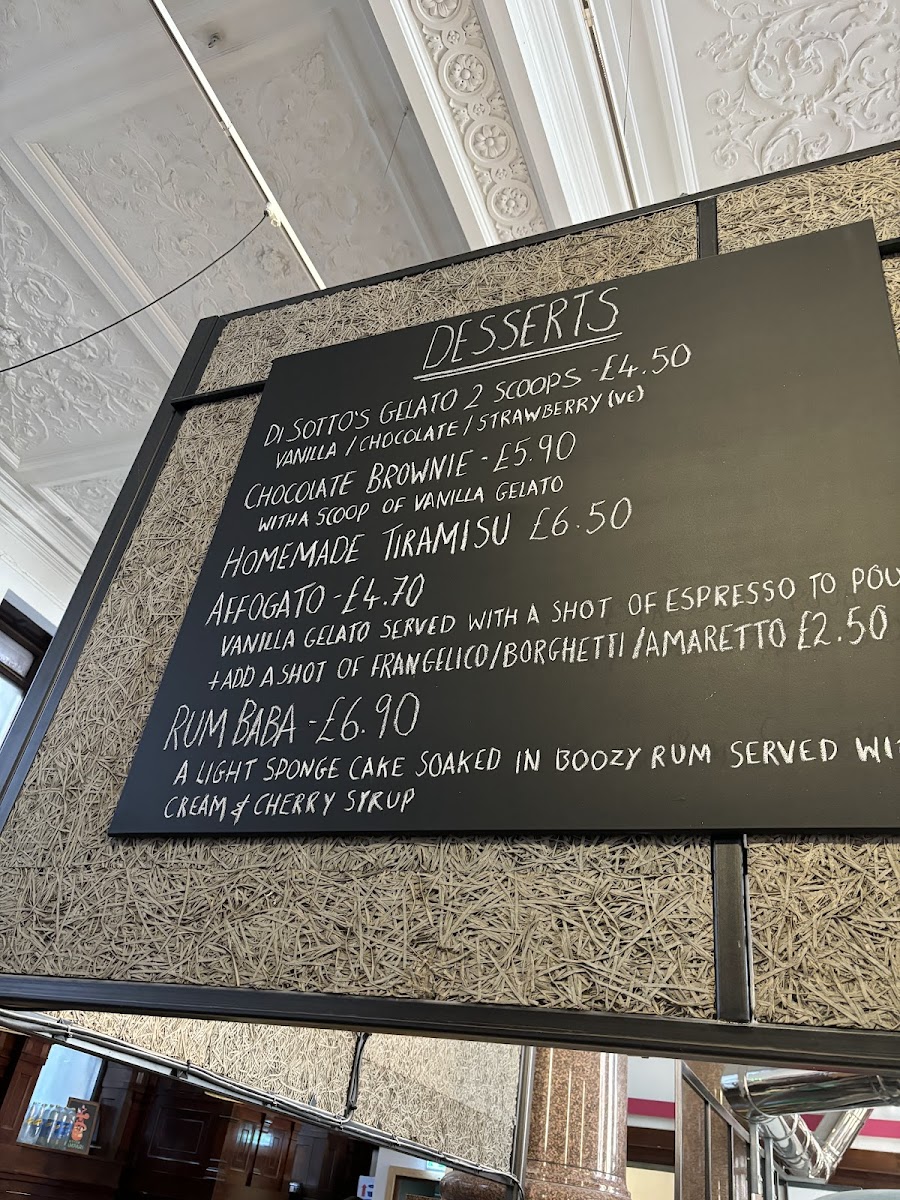 DESSERTS
DI SOTTO'S GELATO 2 SCOOPS - £4.50
VANILLA / CHOCOLATE / STRAWBERRY (VE)
CHOCOLATE BROWNIE - £5.90
WITH A SCOOP OF VANILLA GELATO
HOMEMADE TIRAMISU £6.50
AFFOGATO - £4.70
VANILLA GELATO SERVED WITH A SHOT OF ESPRESSO TO POU
+ADD A SHOT OF FRANGELICO/BORGHETTI/AMARETTO £2.50
RUM BABA - £6.90
A LIGHT SPONGE CAKE SOAKED IN BOOZY RUM SERVED WI
CREAM & CHERRY SYRUP